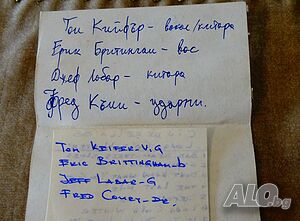 Том Кийфър - вокал/китара
Ерик Бритингам - бас
Джеф Лабар - китара
Фред Къри - ударни.
Tom KEIFER-V,G
ERIC BRITTINGHAM-b
JEFF LABAR-G
FRED COURY-DR.
ALO.bg